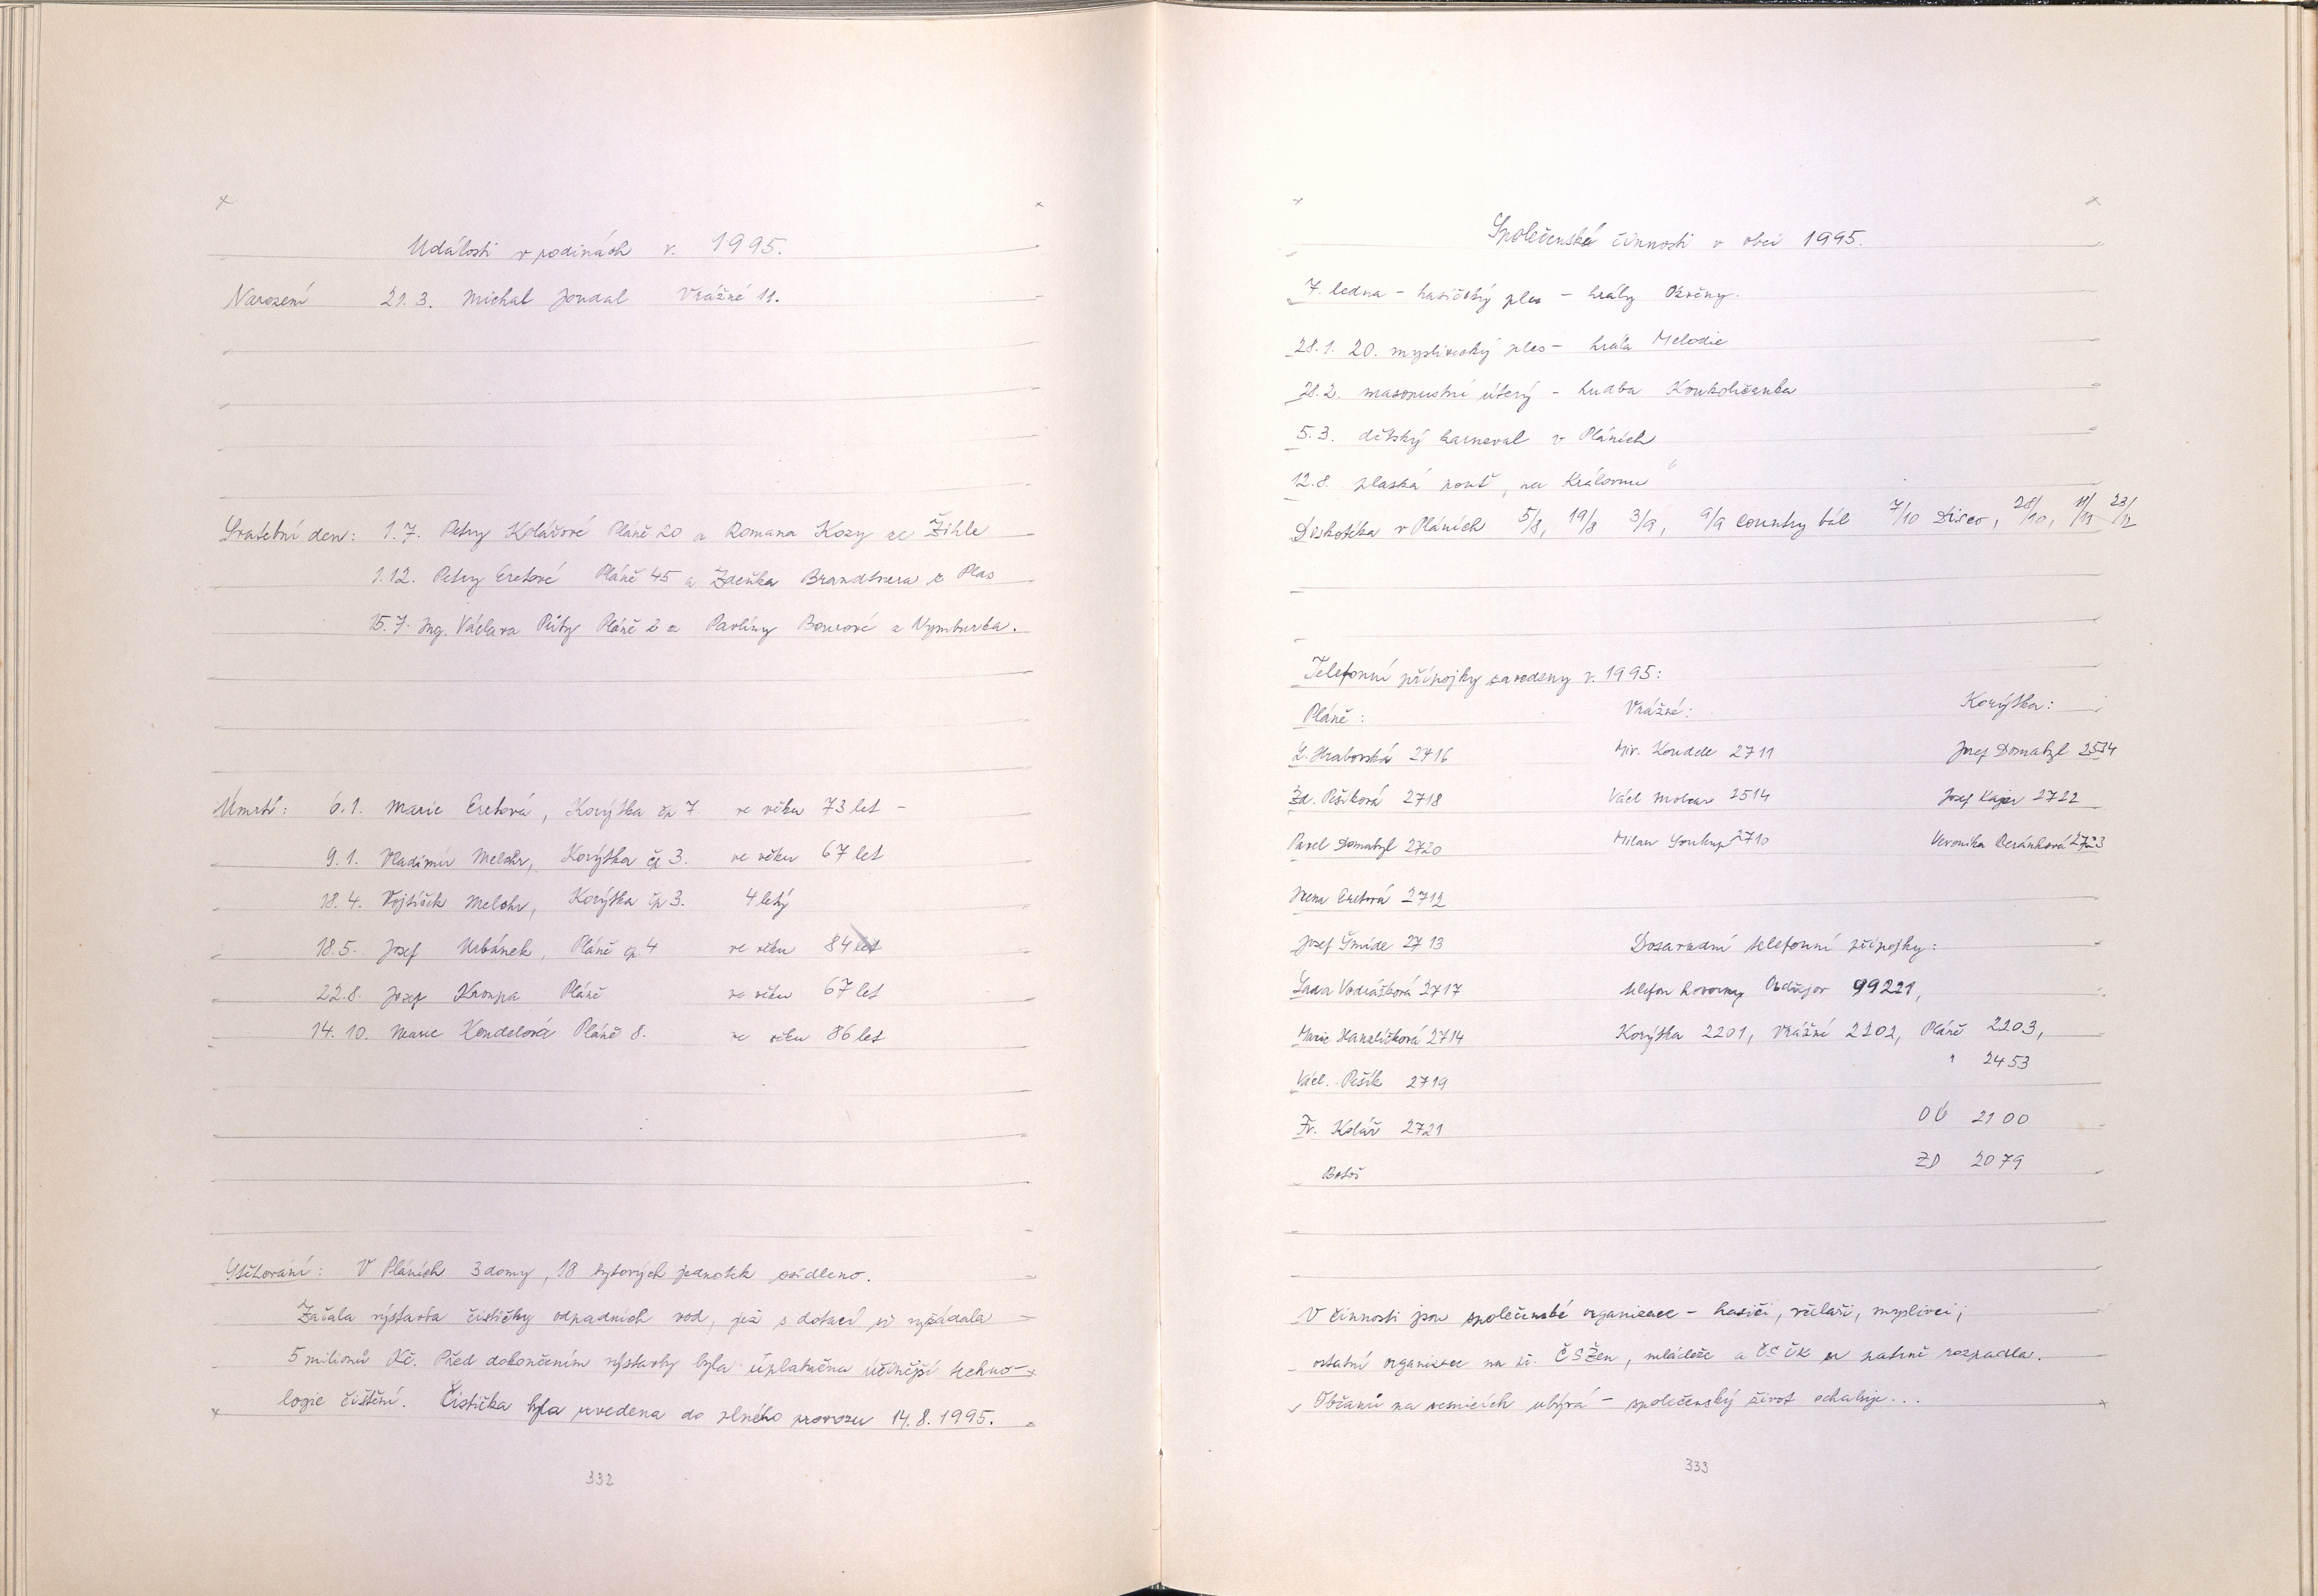 Události v rodinách r. 1995.
Narození 21. 3. Michal Jondal Vrážné 11.
Svatební den: 1. 7. Petry Kolářové Pláně 20 a Romana Kozy ze Žihle
1. 12. Petry Eretové Pláně 45 a Zdeňka Brandtnera z Plas
15. 7. Ing. Václava Půty Pláně 2 a Pavlíny z Nymburka.
Úmrtí: 6. 1. Marie Eretová, Korýtka čp 7 ve věku 73 let -
9. 1. Vladimír Melchr, Korýtka čp 3. ve věku 67 let
18. 4. Vojtíšek Melchr, Korýtka čp 3. 4 letý
18. 5. Josef Urbánek, Pláně čp. 4 ve věku 84 let
22. 8. Josef Kroupa Pláně ve věku 67 let
14. 10. Marie Kondelová Pláně 8. ve věku 86 let
Stěhování: V Pláních 3 domy, 18 bytových jednotek osídleno.
Začala výstavba čističky odpadních vod, jež s dotací si vyžádala
5 milionů Kč. Před dokončením výstavby byla uplatněna účinější techno-
logie čištění. Čistička byla uvedena do plného provozu 14. 8. 1995.
332
Společenská činnosti v obci 1995.
7. ledna - hasičský ples - hrály
28. 1. 20. myslivecký ples - hrála Melodie
28. 2. masopustní úterý - hudba Koukoličanka
5. 3. dětský karneval v Pláních
12. 8. plaská pouť, na Královnu"
Diskotéka v Pláních 5/8, 19/8 3/9, 9/9 Country bál 7/10 Disco, 28/10, 11/11 23/12
Telefonní přípojky zavedeny r. 1995:
Pláně: Vrážné: Korýtka:
L. Hrabovská 2716 Mir. Kondele 2711 Josef Domabyl 2534
Zd. Pešíková 2718 Václ Molcar 2514 Josef Kajer 2722
Pavel Domabyl 2720 Milan Soukup 2710 Veronika Beránková 2723
Irena Eretová 2712
Josef Šmíde 2713 Dosavadní telefonní přípojky:
Lada Vodrážková 2717 telefon hovorny 99221,
Marie Hanzlíčková 2714 Korýtka 2201, Vrážné 2202, Pláně 2203,
" 2453
Václ. Pešík 2719
Fr. Kolář 2721 OÚ 2100
Botoš ZD 2079
V činnosti jsou společenské organizace - hasiči, včelaři, myslivci;
ostatní organizace na př. ČSŽen, mládeže a ČSČK se patrně rozpadla.
Občanů na vesnicích ubývá - společenský život ochabuje...
333